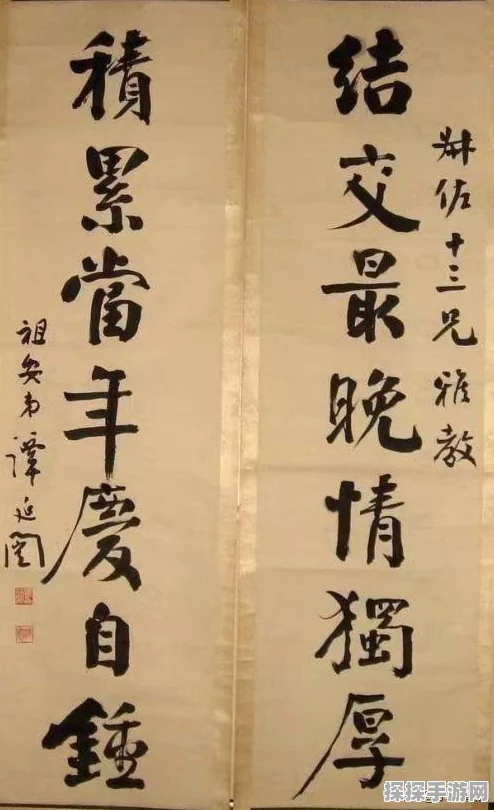 䣋佐十三兄雅教
結交最晚情獨厚
積累當年慶自鍾
祖安弟譚延闓
探探手游网